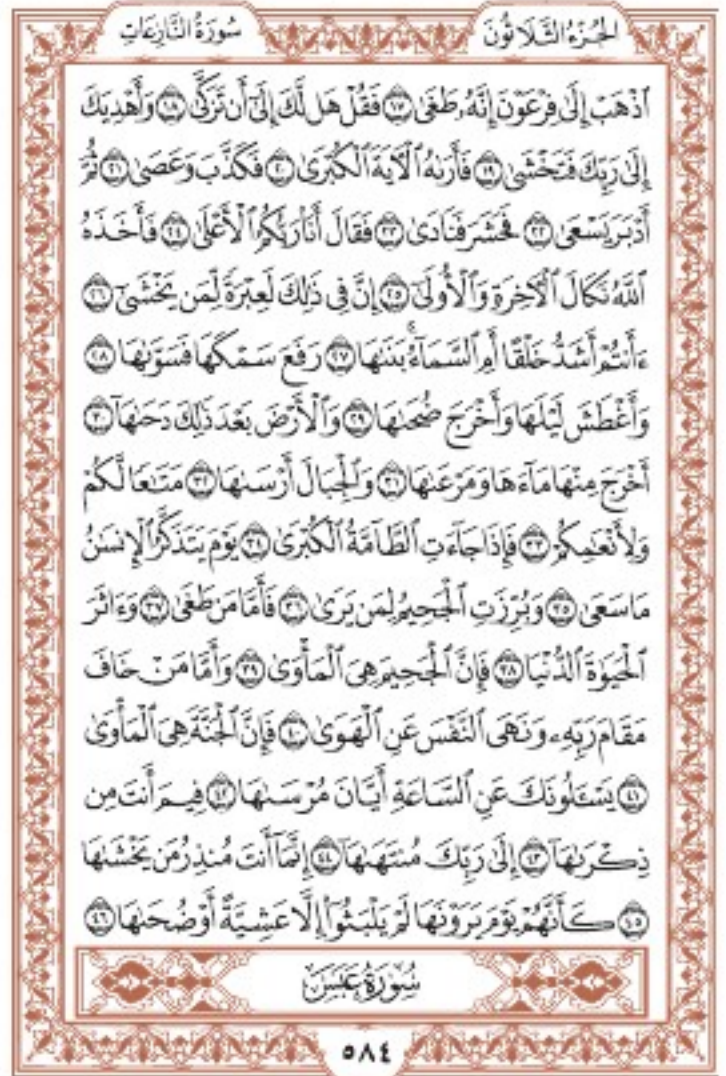 الجزء الثلاثون سورة النازعات
ٱذۡهَبۡ إِلَىٰ فِرۡعَوۡنَ إِنَّهُۥ طَغَىٰ ١٧ فَقُلۡ هَل لَّكَ إِلَىٰٓ أَن تَزَكَّىٰ ١٨ وَأَهۡدِيَكَ
إِلَىٰ رَبِّكَ فَتَخۡشَىٰ ١٩ فَأَرَىٰهُ ٱلۡأٓيَةَ ٱلۡكُبۡرَىٰ ٢٠ فَكَذَّبَ وَعَصَىٰ ٢١ ثُمَّ
أَدۡبَرَ يَسۡعَىٰ ٢٢ فَحَشَرَ فَنَادَىٰ ٢٣ فَقَالَ أَنَا۠ رَبُّكُمُ ٱلۡأَعۡلَىٰ ٢٤ فَأَخَذَهُ
ٱللَّهُ نَكَالَ ٱلۡأٓخِرَةِ وَٱلۡأُولَىٰٓ ٢٥ إِنَّ فِي ذَٰلِكَ لَعِبۡرَةٗ لِّمَن يَخۡشَىٰٓ ٢٦
ءَأَنتُمۡ أَشَدُّ خَلۡقًا أَمِ ٱلسَّمَآءُۚ بَنَىٰهَا ٢٧ رَفَعَ سَمۡكَهَا فَسَوَّىٰهَا ٢٨
وَأَغۡطَشَ لَيۡلَهَا وَأَخۡرَجَ ضُحَىٰهَا ٢٩ وَٱلۡأَرۡضَ بَعۡدَ ذَٰلِكَ دَحَىٰهَآ ٣٠
أَخۡرَجَ مِنۡهَا مَآءَهَا وَمَرۡعَىٰهَا ٣١ وَٱلۡجِبَالَ أَرۡسَىٰهَا ٣٢ مَتَٰعٗا لَّكُمۡ
وَلِأَنۡعَٰمِكُمۡ ٣٣ فَإِذَا جَآءَتِ ٱلطَّآمَّةُ ٱلۡكُبۡرَىٰ ٣٤ يَوۡمَ يَتَذَكَّرُ ٱلۡإِنسَٰنُ
مَا سَعَىٰ ٣٥ وَبُرِّزَتِ ٱلۡجَحِيمُ لِمَن يَرَىٰ ٣٦ فَأَمَّا مَن طَغَىٰ ٣٧ وَءَاثَرَ
ٱلۡحَيَوٰةَ ٱلدُّنۡيَا ٣٨ فَإِنَّ ٱلۡجَحِيمَ هِيَ ٱلۡمَأۡوَىٰ ٣٩ وَأَمَّا مَنۡ خَافَ
مَقَامَ رَبِّهِۦ وَنَهَى ٱلنَّفۡسَ عَنِ ٱلۡهَوَىٰ ٤٠ فَإِنَّ ٱلۡجَنَّةَ هِيَ ٱلۡمَأۡوَىٰ
٤١ يَسۡـَٔلُونَكَ عَنِ ٱلسَّاعَةِ أَيَّانَ مُرۡسَىٰهَا ٤٢ فِيمَ أَنتَ مِن
ذِكۡرَىٰهَآ ٤٣ إِلَىٰ رَبِّكَ مُنتَهَىٰهَآ ٤٤ إِنَّمَآ أَنتَ مُنذِرُ مَن يَخۡشَىٰهَا
٤٥ كَأَنَّهُمۡ يَوۡمَ يَرَوۡنَهَا لَمۡ يَلۡبَثُوٓاْ إِلَّا عَشِيَّةً أَوۡ ضُحَىٰهَا ٤٦
سُورَةُ عَبَسَ
٥٨٤